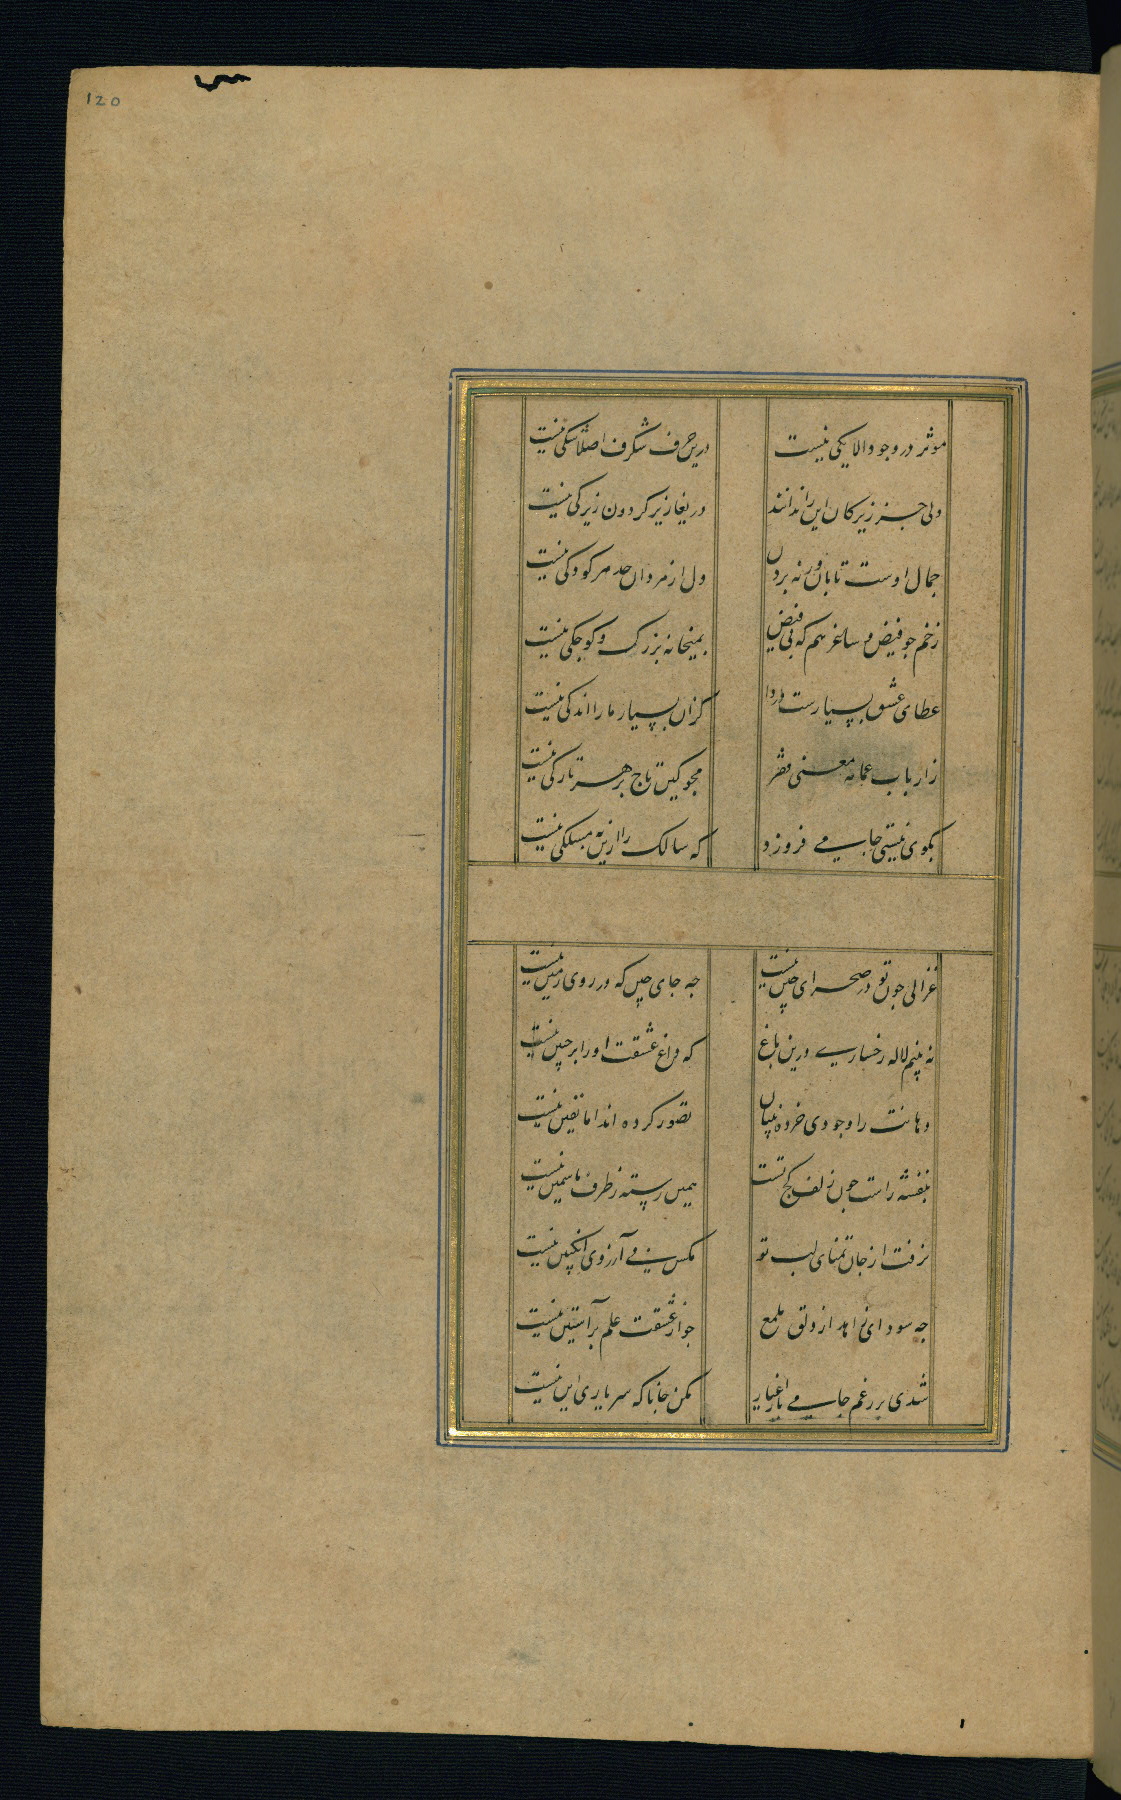 120
موثر در وجود الا یکی نیست
درین حرف شگرف اصلا شکی نیست
ولی جز زیرکان این را ندانند
دریغا زیر کردون زیرکی نیست
جمال اوست تابان ورنه بردن
دل از مردان حد هر کودکی نیست
ز خم جو فیض و ساغر هم که بی فیض
بمیخانه بزرک و کوچکی نیست
عطای عشق بسیارست
کزان بسیار ما را اندکی نیست
ز ارباب عمامه معنی فقر
مجو کین تاج بر هر تارکی نیست
بکوی نیستی جامی فرو رو
که سالک را ازین به مسلکی نیست
غزالی چون تو در صحرای چین نیست
چه جای چین که در روی زمین نیست
نه بینم لاله رخساری درین باغ
که داغ عشقت او را بر جبین نیست
دهانت را وجودی خرده بینان
تصور کرده اند اما یقین نیست
بنفشه راست چون زلف کج تست
همین رسته ز طرف یاسمین نیست
نرفت از جان تمنای لب تو
مکس بی آرزوی انکبین نیست
چه سود ای زاهد از دلق ملمع
چو از عشقت علم بر آستین نیست
شدی بر رغم جامی یار اغیار
مکن جانا که سر یاری این نیست